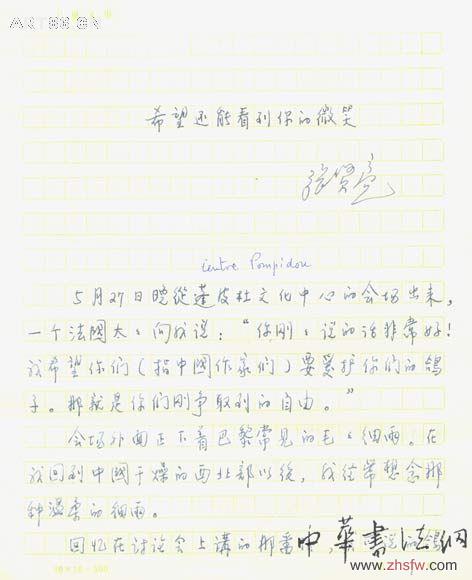 ART86.CN
希望还能看到你的微笑
张贤亮
Centre Pompidou
5月27日晚從蓬皮杜文化中心的会场出来，
一个法國太々向我说：“你刚々说的话非常好！
我希望你们（指中國作家们）要爱护你们的鸽
子。那就是你们刚争取到的自由。”
会场外面正下着巴黎常见的毛々细雨。在
我回到中國干燥的西北部以後，我经常想念那
种温柔的细雨。
回忆在讨论会上講的那番
的鸽
中華書法网
www.zhsfw.com